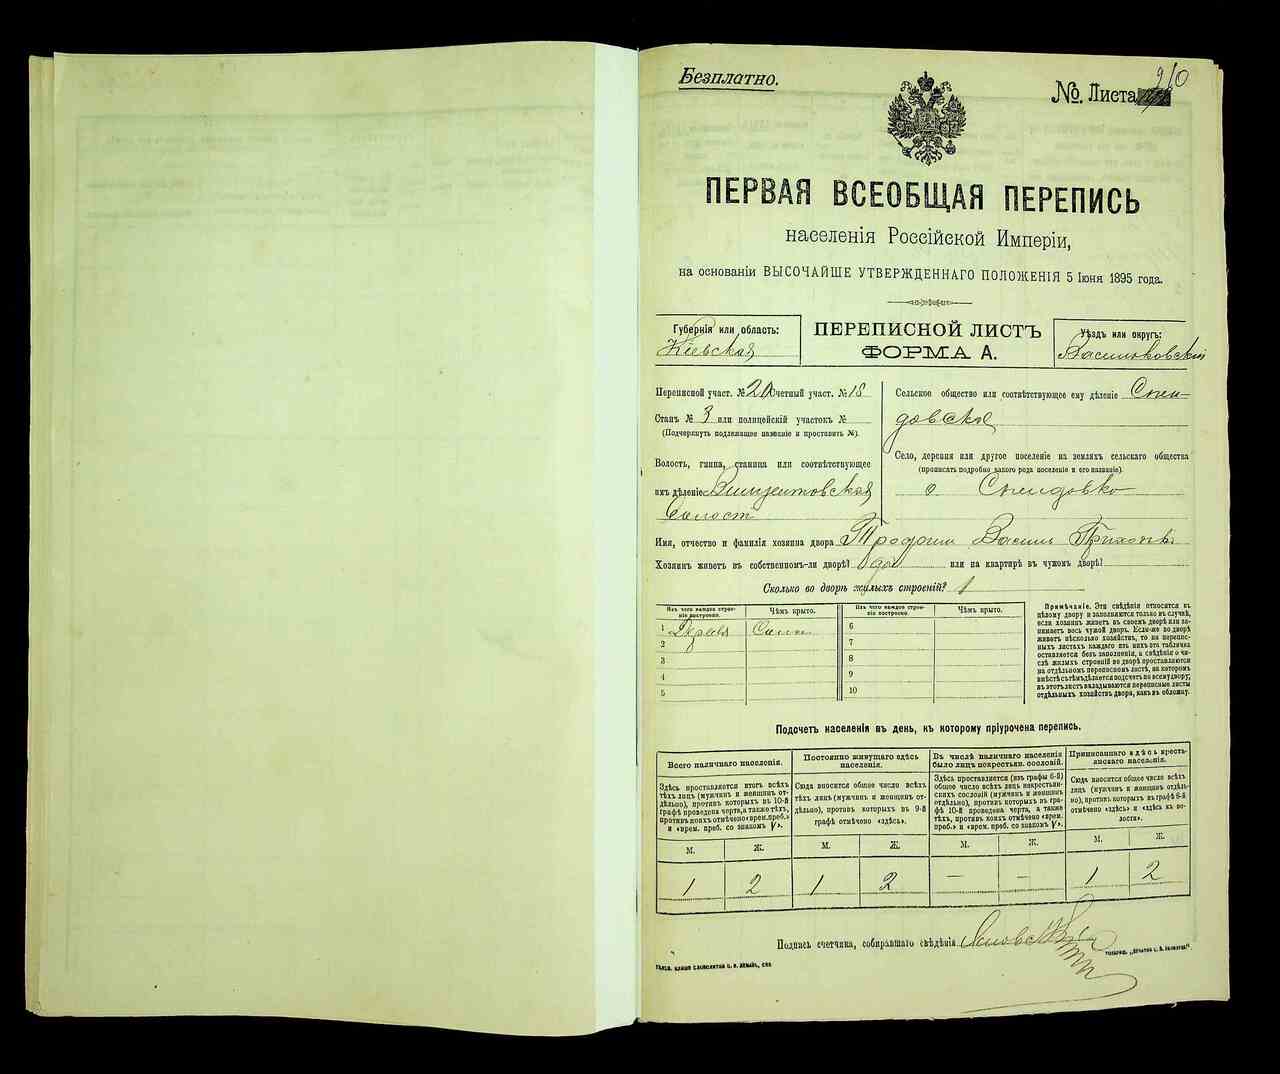 Безплатно.
№. Листа 210
ПЕРВАЯ ВСЕОБЩАЯ ПЕРЕПИСЬ
населенія Россійской Имперіи,
на основаніи ВЫСОЧАЙШЕ УТВЕРЖДЕННАГО ПОЛОЖЕНІЯ 5 Іюня 1895 года.
Губернія или область:
Кіевская
ПЕРЕПИСНОЙ ЛИСТЪ
ФОРМА А.
Уѣздъ или округъ:
Васильковскій
Переписной участ. № 20 Счетный участ. № 18
Станъ № 3 или полицейскій участокъ №
(Подчеркнуть подлежащее названіе и проставить №).
Волость, гмина, станица или соотвѣтствующее
ихъ дѣленіе Винцентовская
Сельское общество или соотвѣтствующее ему дѣленіе Спен-
довское
Село, деревня или другое поселеніе на земляхъ сельскаго общества
(прописать подробно какого рода поселеніе и его названіе).
с. Спендовко
Имя, отчество и фамилія хозяина двора Василь
Хозяинъ живетъ въ собственномъ-ли дворѣ? да или на квартирѣ въ чужомъ дворѣ?
Сколько во дворѣ жилыхъ строеній? 1
Изъ чего каждое строеніе построено.
Чѣмъ крыто.
Изъ чего каждое строеніе построено.
Чѣмъ крыто.
1
2
3
4
5
6
7
8
9
10
Примѣчаніе. Эти свѣдѣнія относятся къ
цѣлому двору и заполняются только въ случаѣ,
если хозяинъ живетъ въ своемъ дворѣ или за-
нимаетъ весь чужой дворъ. Если-же во дворѣ
живетъ нѣсколько хозяйствъ, то на перепис-
ныхъ листахъ каждаго изъ нихъ эта табличка
оставляется безъ заполненія, а свѣдѣнія о чи-
слѣ жилыхъ строеній во дворѣ проставляются
на отдѣльномъ переписномъ листѣ, на которомъ
вмѣстѣ съ тѣмъ дѣлается подсчетъ по всему двору;
въ этотъ листъ вкладываются переписные листы
отдѣльныхъ хозяйствъ двора, какъ въ обложку.
Подсчетъ населенія въ день, къ которому пріурочена перепись.
Всего наличнаго населенія.
Здѣсь проставляется итогъ всѣхъ
тѣхъ лицъ (мужчинъ и женщинъ от-
дѣльно), противъ которыхъ въ 10-й
графѣ проведена черта, а также тѣхъ,
противъ коихъ отмѣчено «врем. преб.»
и «врем. преб. со знакомъ V».
Постоянно живущаго здѣсь
населенія.
Сюда вносится общее число всѣхъ
тѣхъ лицъ (мужчинъ и женщинъ от-
дѣльно), противъ которыхъ въ 9-й
графѣ отмѣчено «здѣсь».
Въ числѣ наличнаго населенія
было лицъ некрестьян. сословій.
Здѣсь проставляется (изъ графы 6-й)
общее число всѣхъ лицъ некрестьян-
скихъ сословій (мужчинъ и женщинъ
отдѣльно), противъ которыхъ въ гра-
фѣ 10-й проведена черта, а также
тѣхъ, противъ коихъ отмѣчено «врем.
преб.» и «врем. преб. со знакомъ V».
Приписаннаго здѣсь кресть-
янскаго населенія.
Сюда вносится общее число всѣхъ
лицъ (мужчинъ и женщинъ отдѣль-
но), противъ которыхъ въ графѣ 8-й
отмѣчено «здѣсь» и «здѣсь къ во-
лости».
М. Ж. М. Ж. М. Ж. М. Ж.
1 2 1 2 — — 1 2
Подпись счетчика, собиравшаго свѣдѣнія